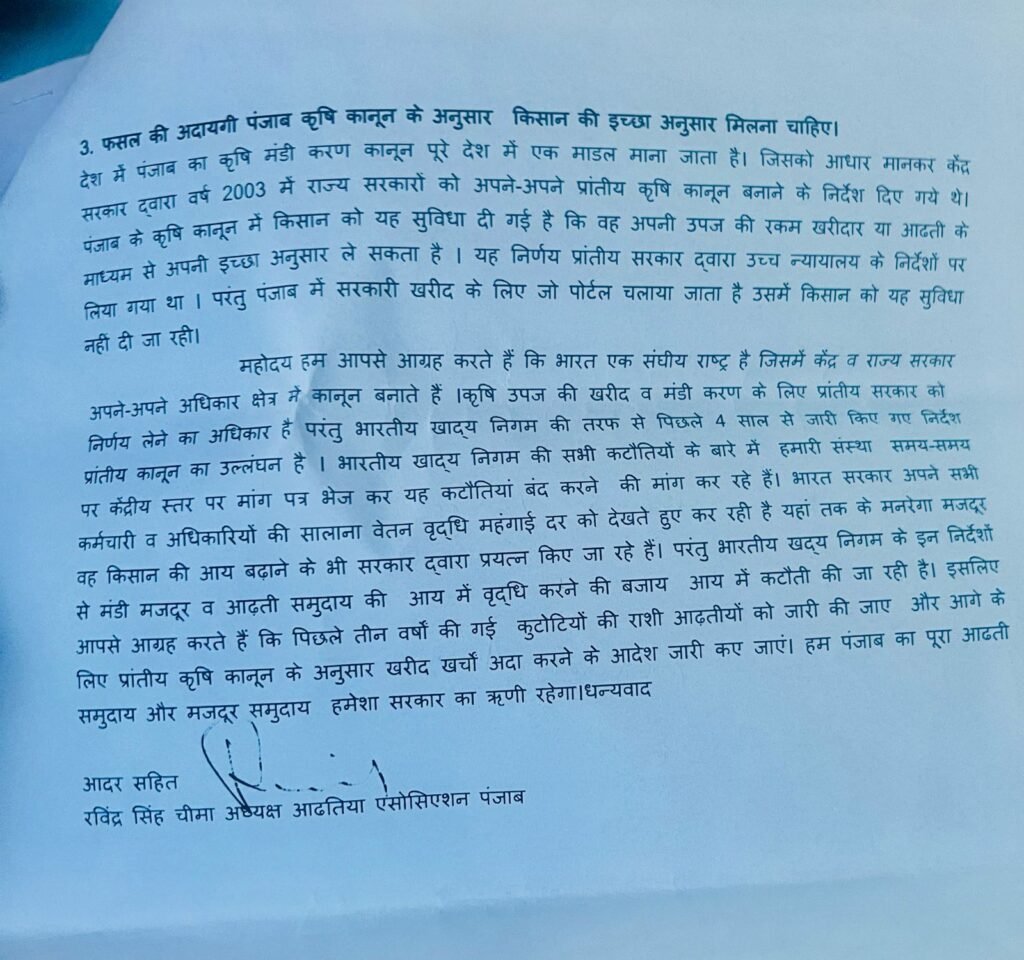 3. फसल की अदायगी पंजाब कृषि कानून के अनुसार किसान की इच्छा अनुसार मिलना चाहिए।
देश में पंजाब का कृषि मंडी करण कानून पूरे देश में एक माडल माना जाता है। जिसको आधार मानकर केंद्र
सरकार द्वारा वर्ष 2003 में राज्य सरकारों को अपने-अपने प्रांतीय कृषि कानून बनाने के निर्देश दिए गये थे।
पंजाब के कृषि कानून में किसान को यह सुविधा दी गई है कि वह अपनी उपज की रकम खरीदार या आढती के
माध्यम से अपनी इच्छा अनुसार ले सकता है । यह निर्णय प्रांतीय सरकार द्वारा उच्च न्यायालय के निर्देशों पर
लिया गया था । परंतु पंजाब में सरकारी खरीद के लिए जो पोर्टल चलाया जाता है उसमें किसान को यह सुविधा
नहीं दी जा रही।
महोदय हम आपसे आग्रह करते हैं कि भारत एक संघीय राष्ट्र है जिसमें केंद्र व राज्य सरकार
अपने-अपने अधिकार क्षेत्र में कानून बनाते हैं ।कृषि उपज की खरीद व मंडी करण के लिए प्रांतीय सरकार को
निर्णय लेने का अधिकार है परंतु भारतीय खाद्य निगम की तरफ से पिछले 4 साल से जारी किए गए निर्देश
प्रांतीय कानून का उल्लंघन है । भारतीय खाद्य निगम की सभी कटौतियों के बारे में हमारी संस्था समय-समय
पर केंद्रीय स्तर पर मांग पत्र भेज कर यह कटौतियां बंद करने की मांग कर रहे हैं। भारत सरकार अपने सभी
कर्मचारी व अधिकारियों की सालाना वेतन वृद्धि महंगाई दर को देखते हुए कर रही है यहां तक के मनरेगा मजदूर
वह किसान की आय बढ़ाने के भी सरकार द्वारा प्रयत्न किए जा रहे हैं। परंतु भारतीय खद्य निगम के इन निर्देशों
से मंडी मजदूर व आढ़ती समुदाय की आय में वृद्धि करंने की बजाय आय में कटौती की जा रही है। इसलिए
आपसे आग्रह करते हैं कि पिछले तीन वर्षों की गई कुटोटियों की राशी आढ़तीयों को जारी की जाए और आगे के
लिए प्रांतीय कृषि कानून के अनुसार खरीद खर्चो अदा करने के आदेश जारी कए जाएं। हम पंजाब का पूरा आढती
समुदाय और मजदूर समुदाय हमेशा सरकार का ऋणी रहेगा।धन्यवाद
आदर सहित
रविंद्र सिंह चीमा अध्यक्ष आढतिया एसोसिएशन पंजाब